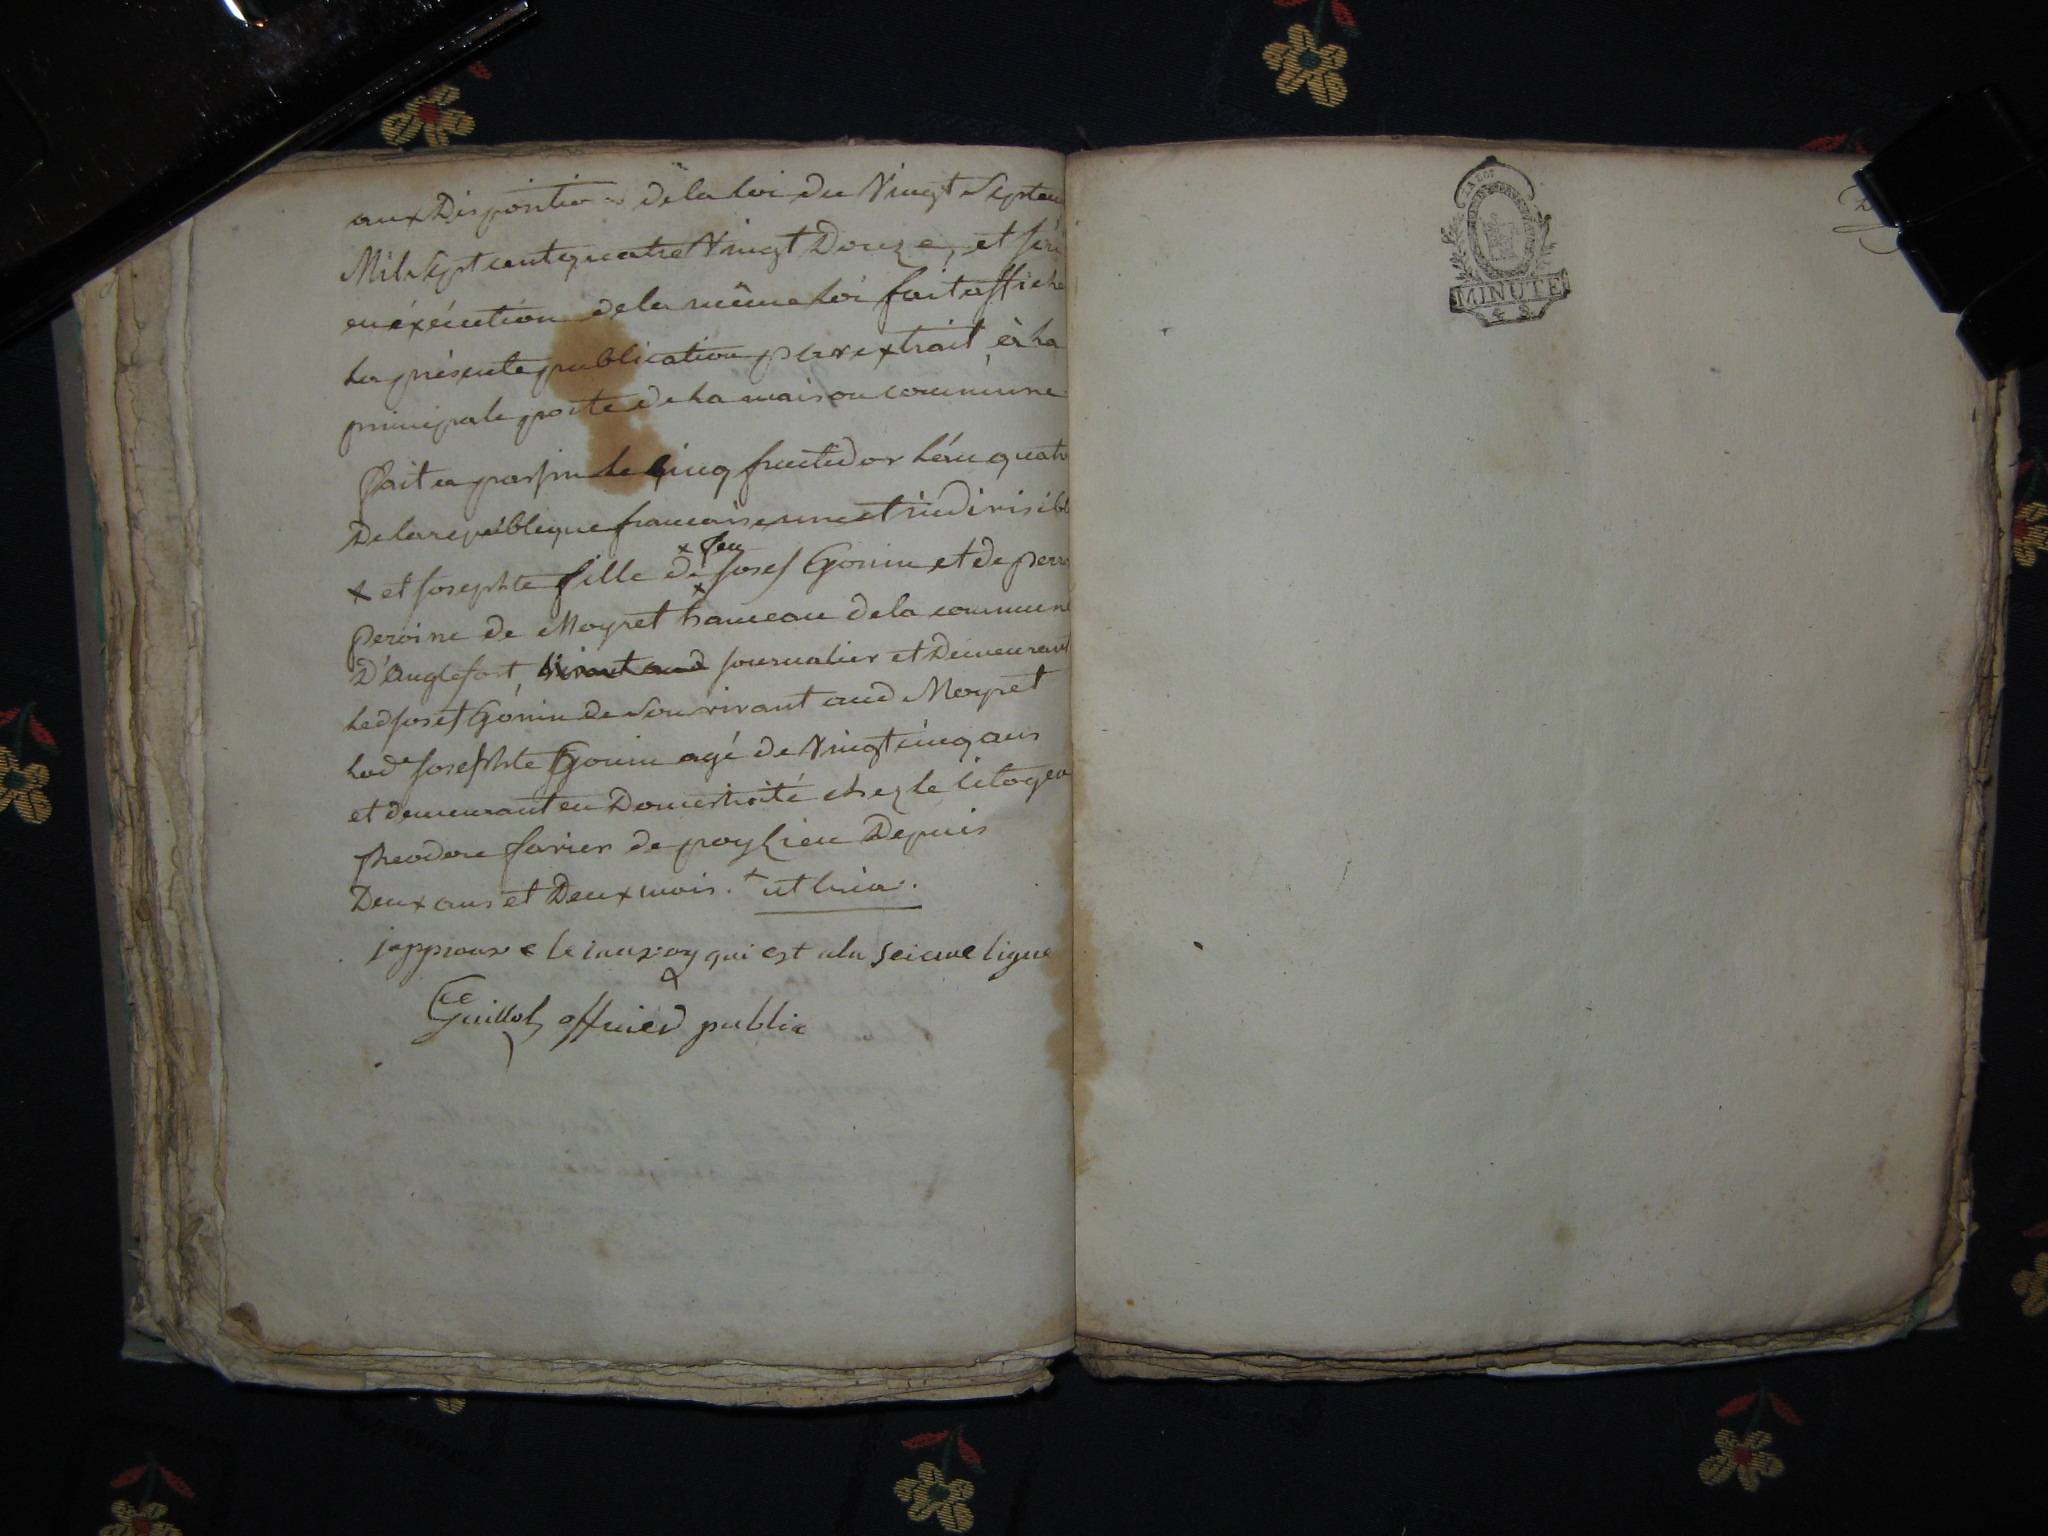 aux Disposition de la Loi du Vingt Septem
Mil Sept cent quatre Vingt Douze, et
en éxécution de la même Loi fait affiche
La présente publication par extrait, à La
principale porte de La maison commune
fait a le Cinq fructidor L'an quatr
De la république francaise une et indivisibl
x feu
x et Josephte fille de Josef Gonin et de perr
peroine de Moyret hameau de la commune
D'Anglefort, journalier et Demeurant
Led Josef Gonin de Son vivant aud Moyret
Lade Josephte Gonin agé de Vingt cinq ans
et demeurant en Domesticité chez le Citoyen
Theodore de poylieu Depuis
Deux ans et Deux mois. +
japprouve le qui est a la Seieme ligne
Guillot officier public
LA LOI
MINUTE
4 S.